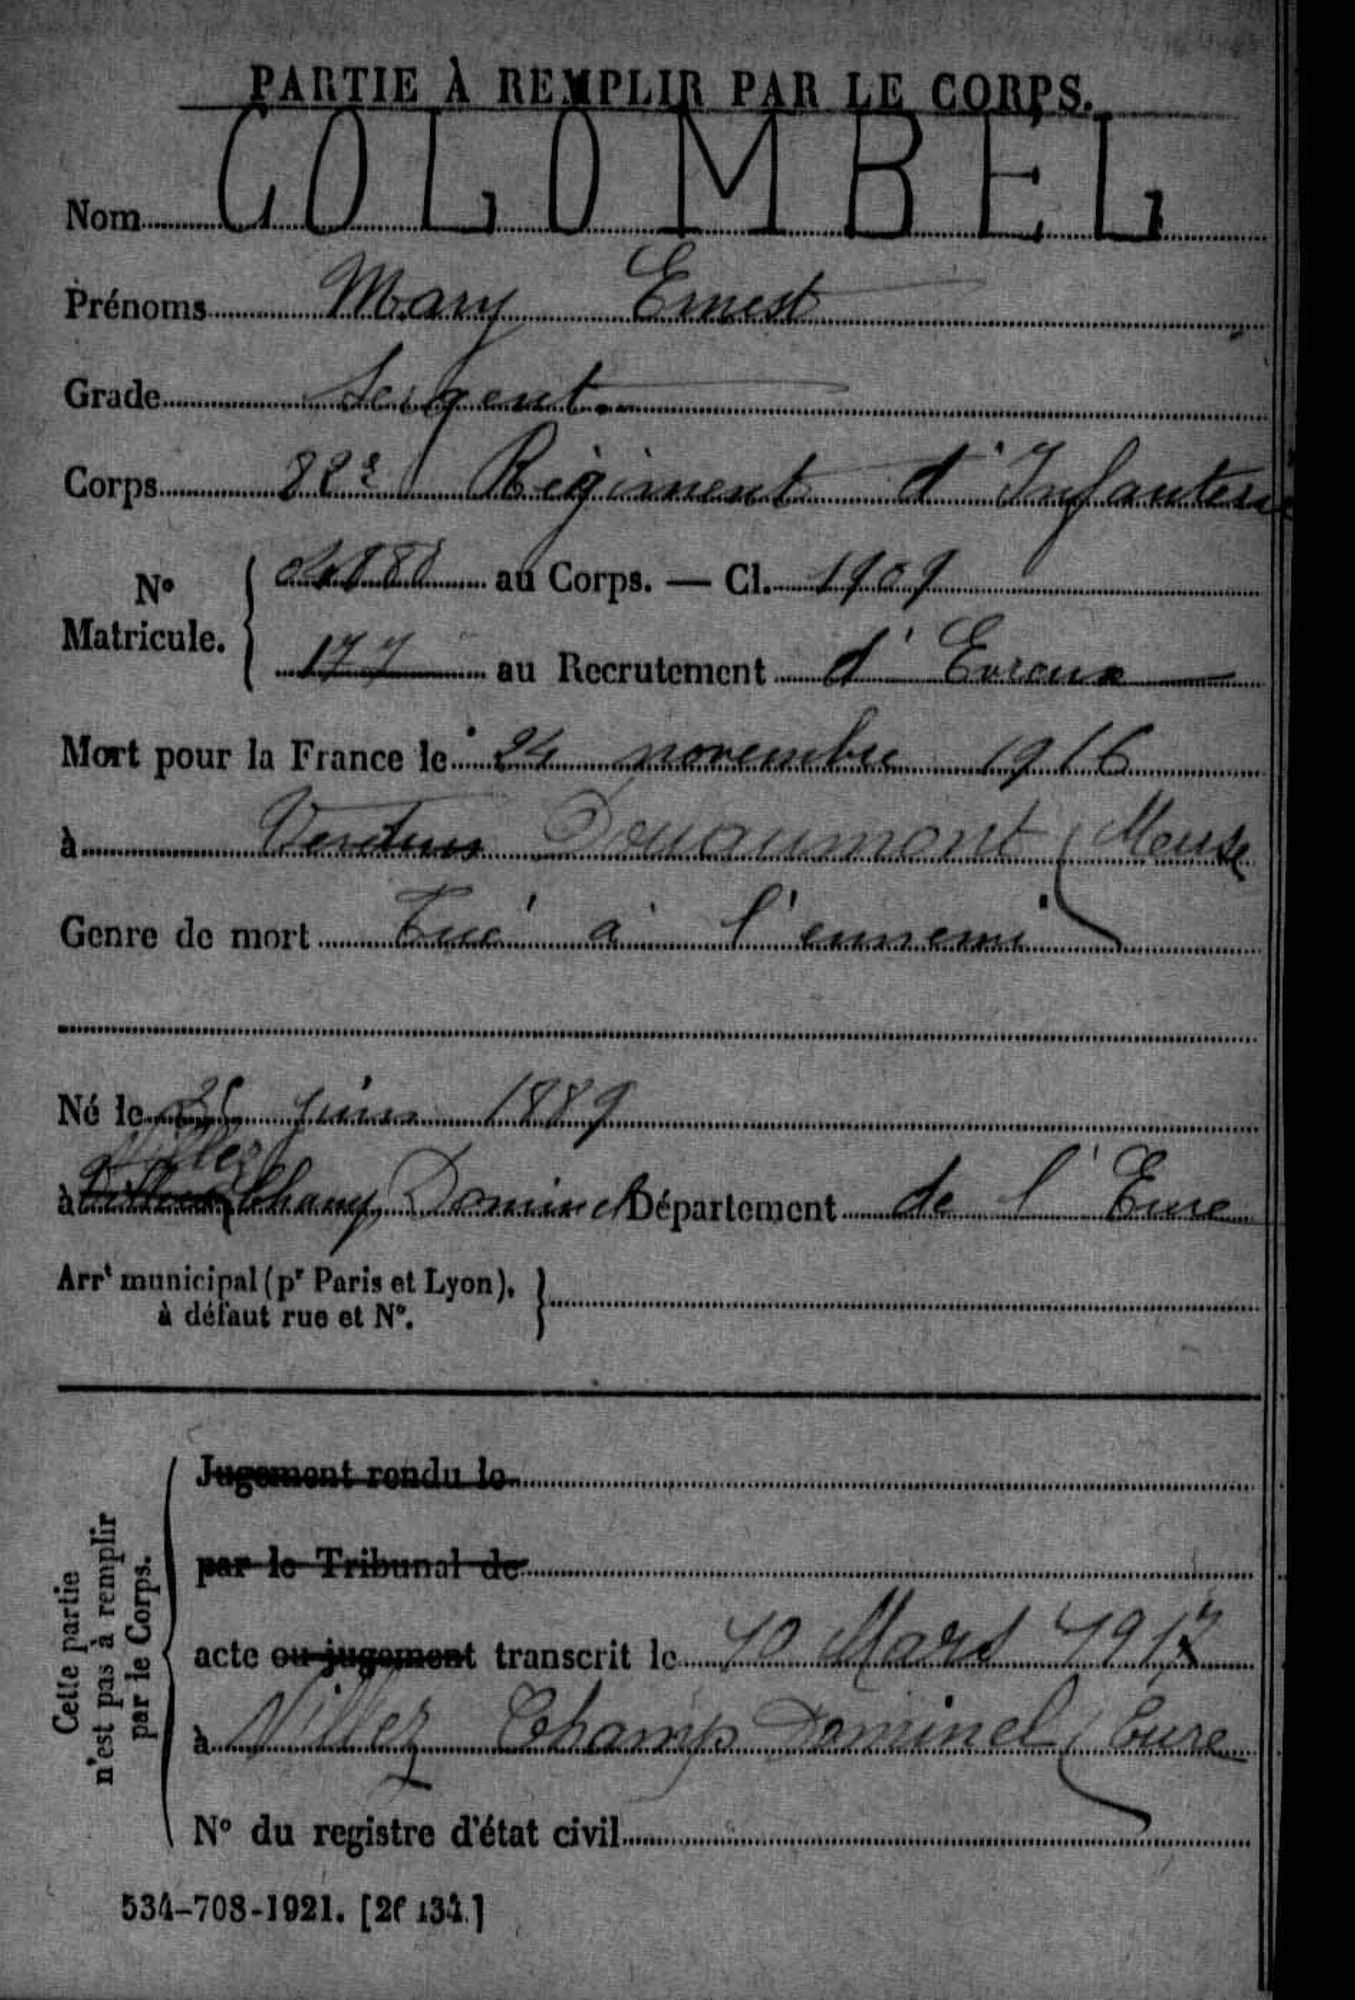 PARTIE À REMPLIR PAR LE CORPS.
Nom COLOMBEL
Prénoms Mary Ernest
Grade Sergent
Corps 82e Régiment d'Infanterie
No Matricule. au Corps. — Cl. 1909
177 au Recrutement d'Evreux
Mort pour la France le 24 novembre 1916
à Verdun Douaumont (Meuse
Genre de mort Tué à l'ennemi
Né le juin 1889
Villez
à Champ Dominel Département de l'Eure
Arrt municipal (pr Paris et Lyon),
à défaut rue et No.
Cette partie
n'est pas à remplir
par le Corps.
Jugement rendu le
par le Tribunal de
acte ou jugement transcrit le 10 Mars 1917
à Villez Champ Dominel (Eure
No du registre d'état civil
534-708-1921. [26134.]